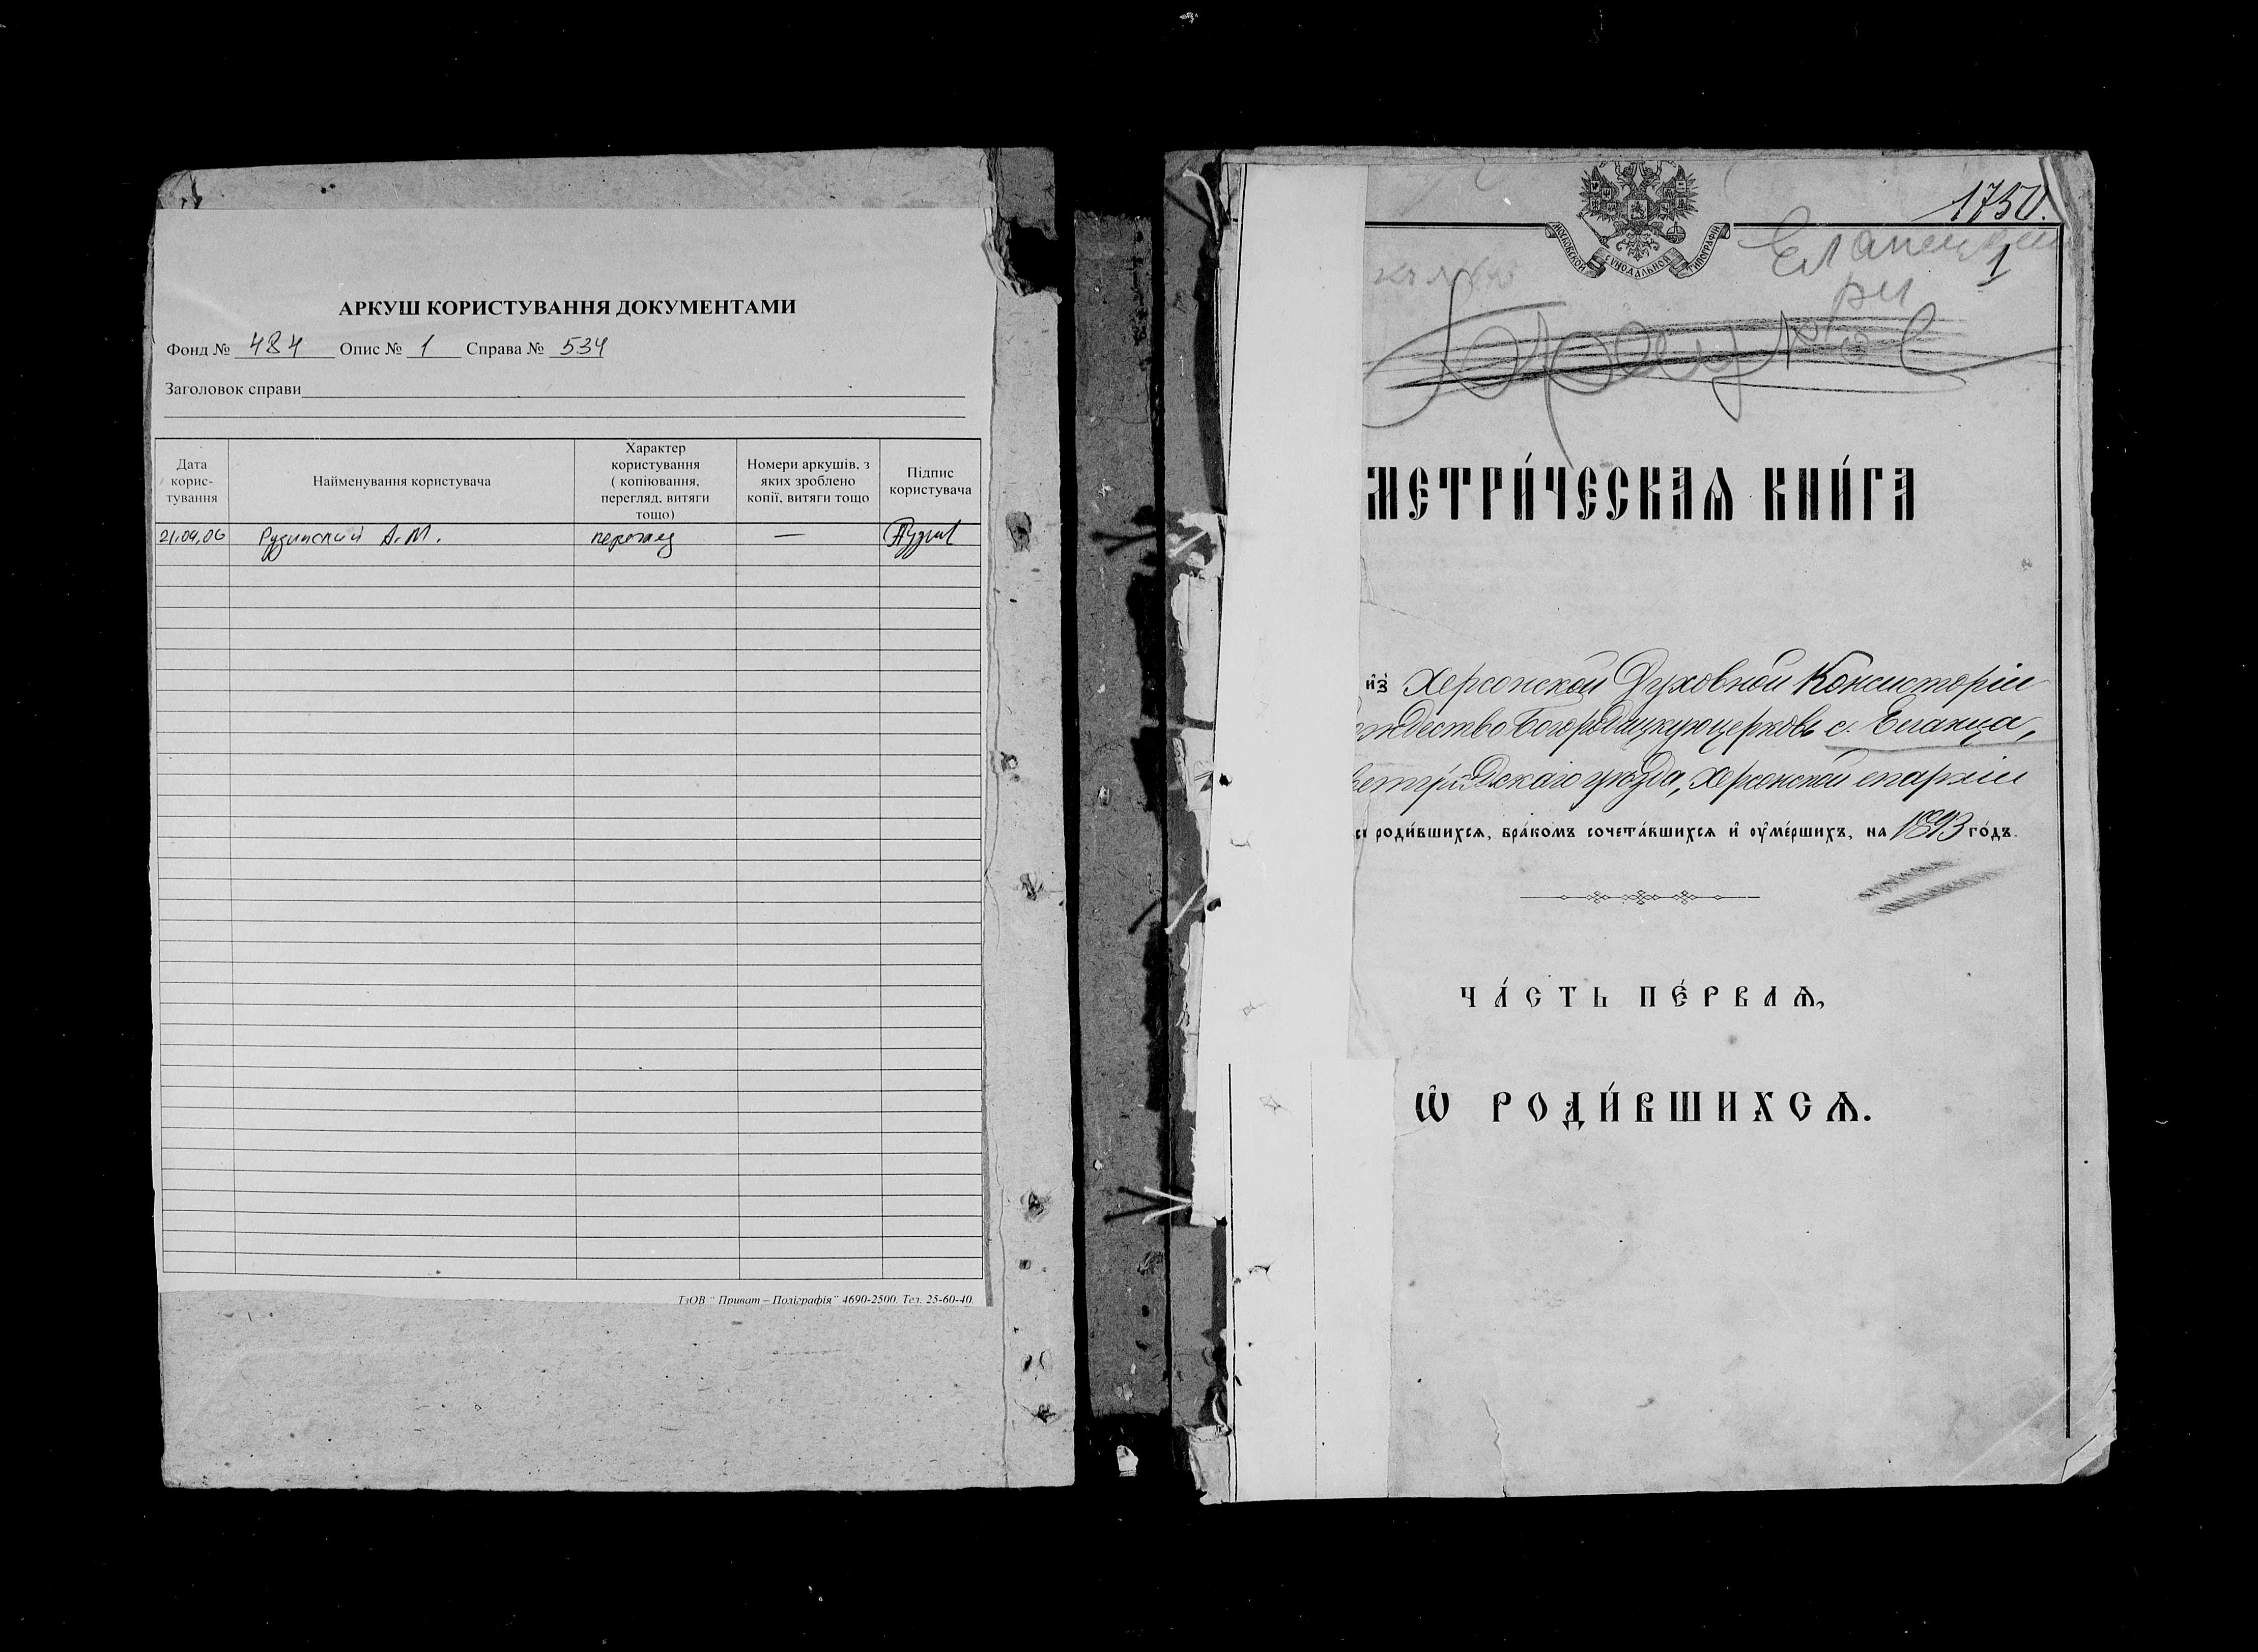 АРКУШ КОРИСТУВАННЯ ДОКУМЕНТАМИ
Фонд № 484 Опис № 1 Справа № 534
Заголовок справи
Дата корис-тування
Найменування користувача
Характер користування ( копіювання, перегляд, витяги тощо)
Номери аркушів, з яких зроблено копії, витяги тощо
Підпис користувача
21.04.06 Рудинский А.М. перегляд —
ТзОВ " Приват – Поліграфія" 4690-2500. Тел. 25-60-40.
1750.
МОСКОВСКОЙ СѴНОДАЛЬНОЙ ТИПОГРАФІИ
Еланецкий
1
РИ
МЕТРИ́ЧЕСКАѦ КНИ́ГА
и҆з̾ Херсонской Духовной Консисторіи
ждество Богородицкую церковь с. Еланца,
ветградскаго уѣзда, Херсонской епархіи
роди́вшихсѧ, бра́комъ сочета́вшихсѧ и҆ ᲂу҆ме́ршихъ, на 1893 го́дъ.
ЧА́СТЬ ПЕ́РВАѦ,
Ѡ҆ РОДИ́ВШИХСѦ.